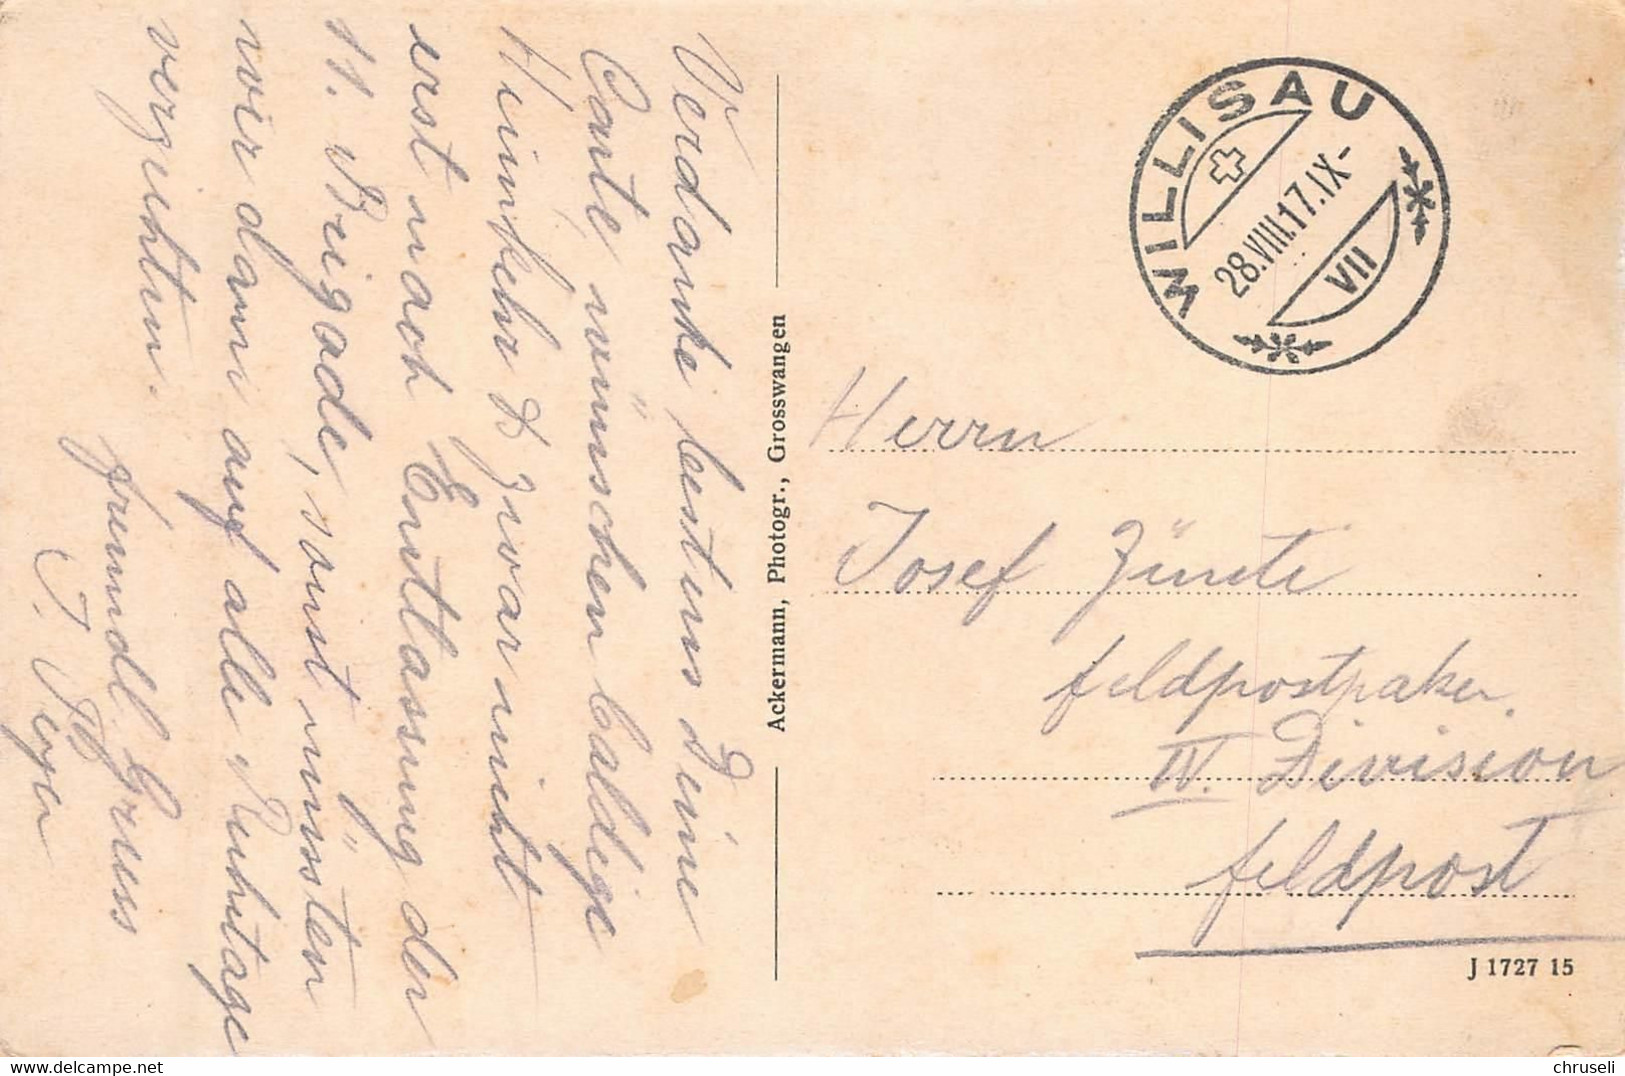 Verdanke bestens Deine
Carte, wünschen baldige
Heimkehr & zwar nicht
erst nach Entlassung der
11. Brigade, sonst müssten
wir dann auf alle Ruhetage
verzichten.
freundl. Gruss
J.
Ackermann, Photogr., Grosswangen
WILLISAU
28.VIII.17.IX-
VII
Herrn
Josef
Feldpostpaker.
IV. Division
Feldpost
J 1727 15
chruseli